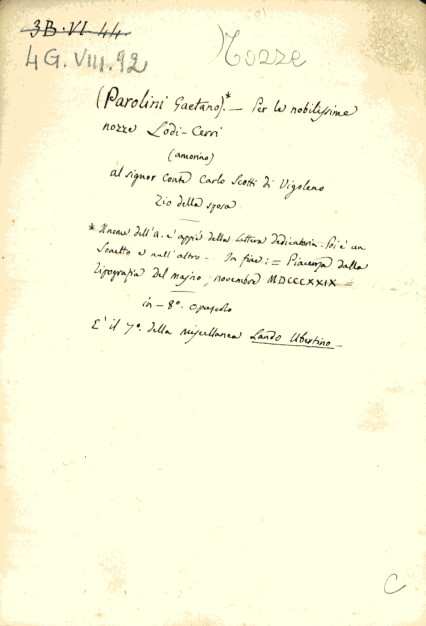 3B.VI.44
4G.VIII.92
Nozze
(Parolini Gaetano)*. — Per le nobilissime
nozze Lodi-Cerri
(amorino)
al signor Conte Carlo Scotti di Vigoleno
zio della sposa
* Il nome dell'a. è appiè della lettera dedicatoria. Poi è un
Sonetto e null'altro. — In fine: = Piacenza dalla
tipografia del majno, novembre MDCCCXXIX =
in-8°. opuscolo
E' il 7°. della miscellanea Lando Ubertino —
C